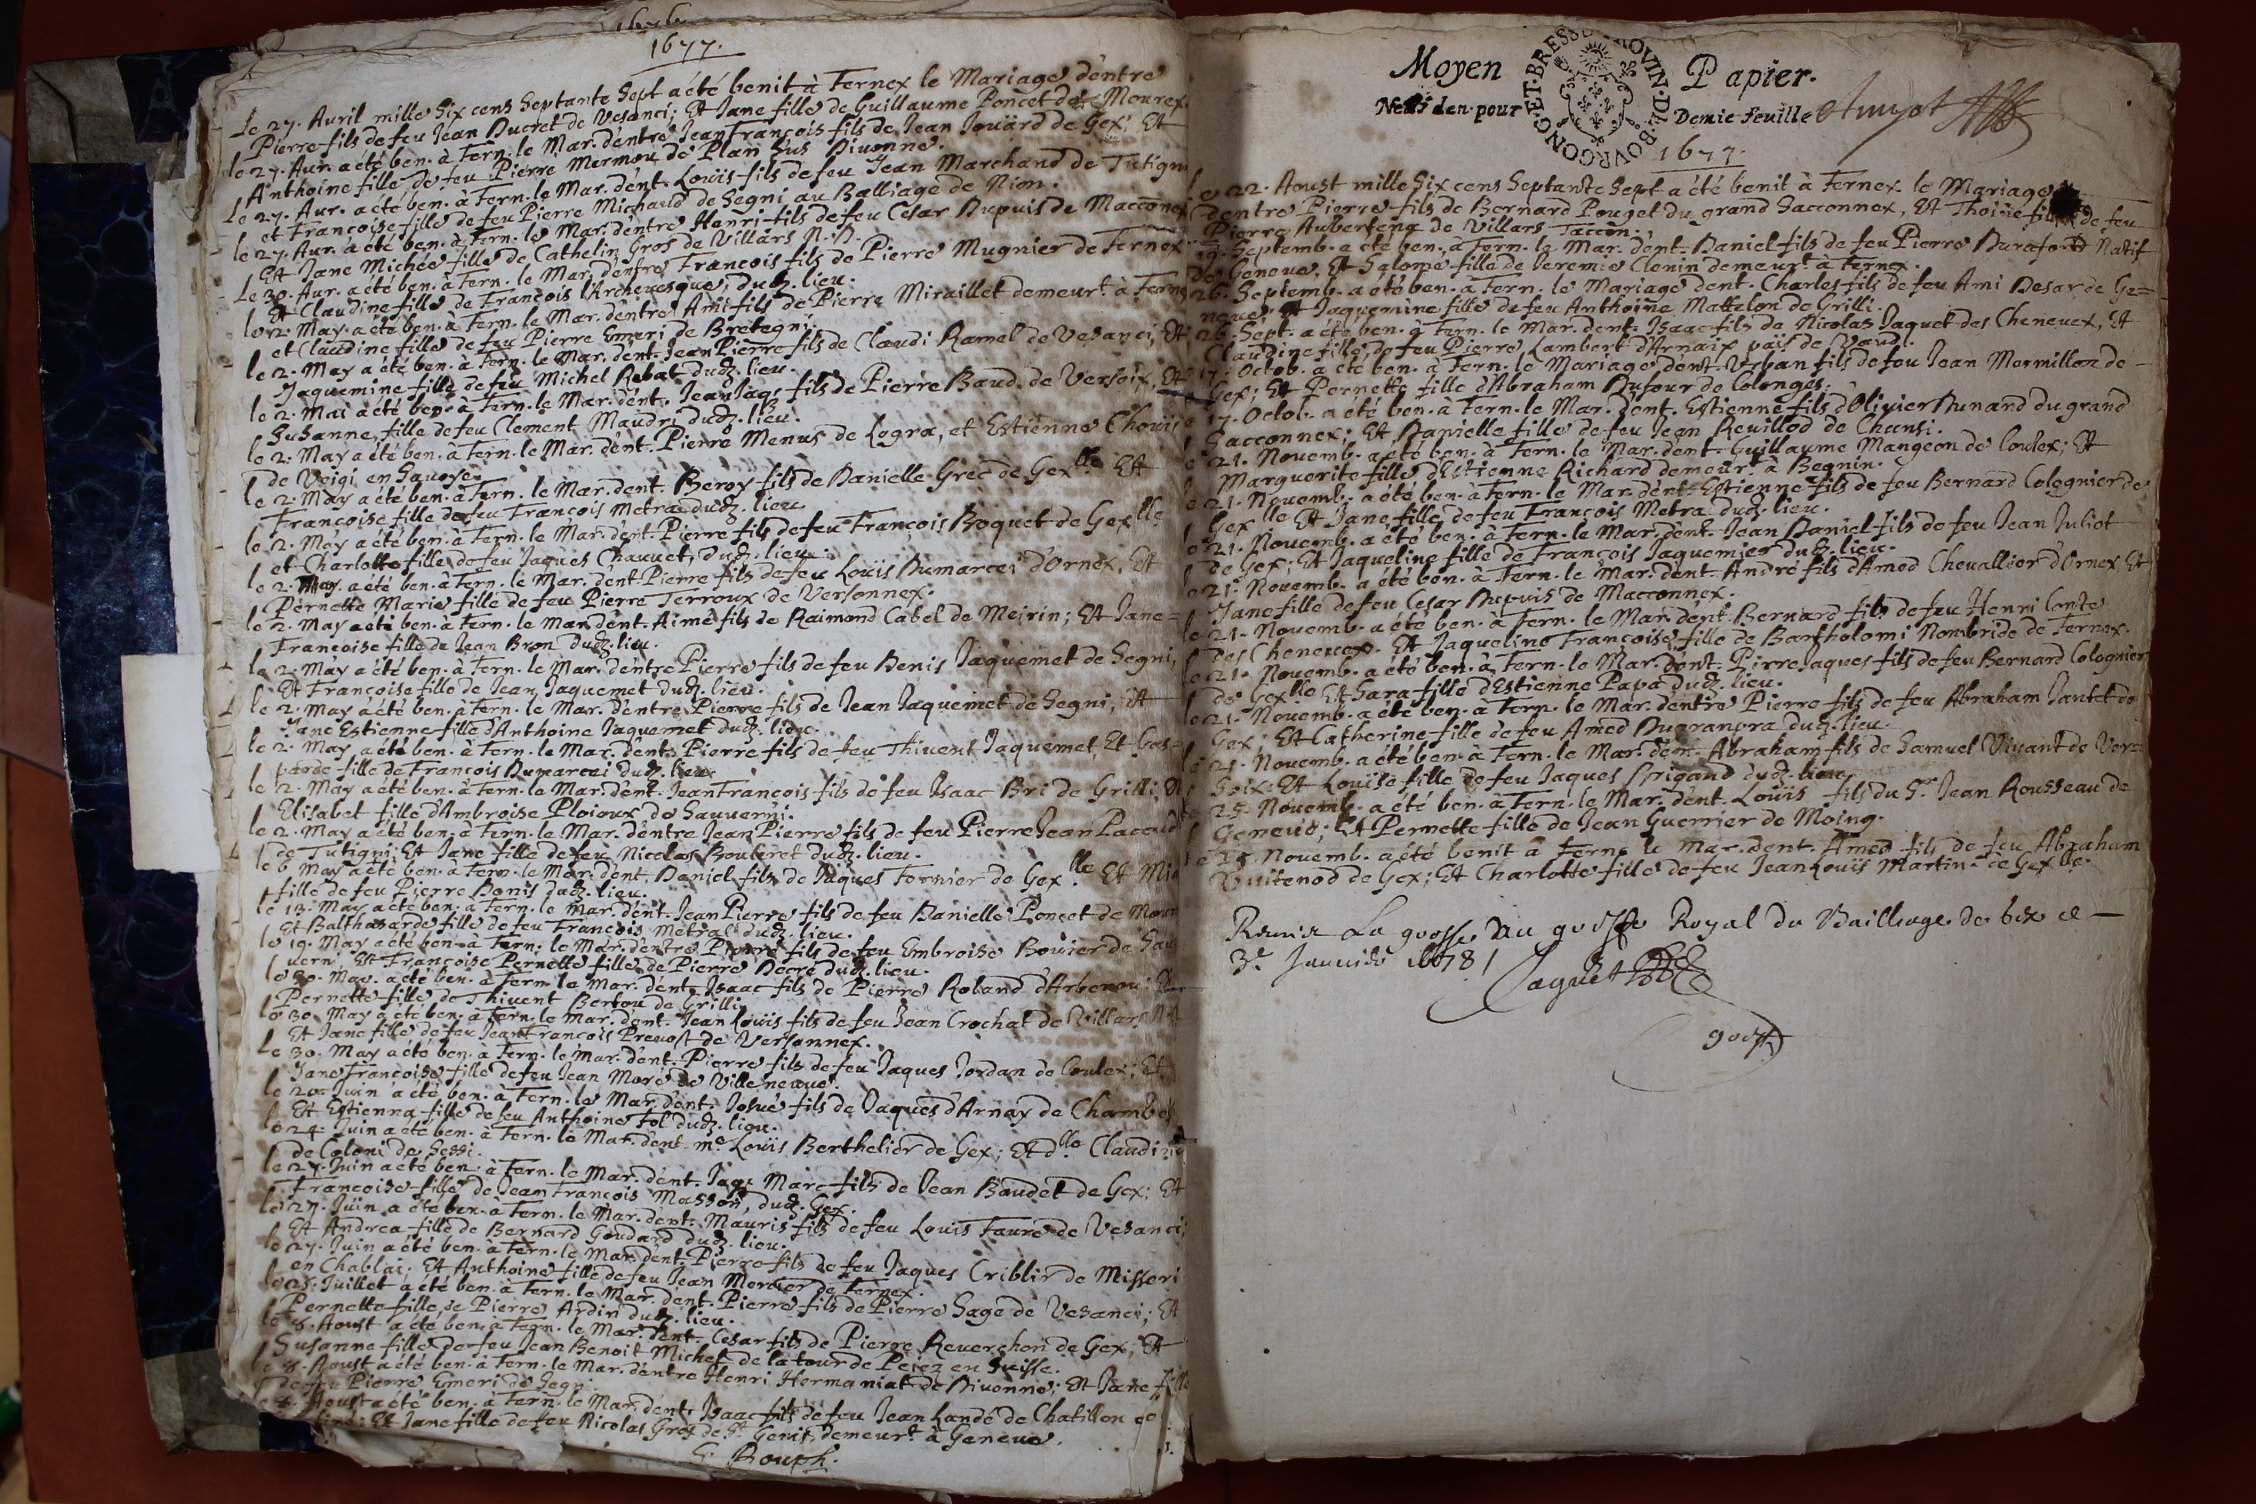 1676
1677.
Le 27. Avril mille Six cens Septante Sept a été benit à Fernex le Mariage d'entre
Pierre fils de feu Jean Ducret de Vesanci; Et Jane fille de Guillaume Poncet de Mourex.
le 27. Avr. a été ben. à Fern. le Mar. d'entre Jean François fils de Jean Joüard de Gex; Et
Anthoine fille de feu Pierre Mermou de Plan Sus Divonne.
Le 27. Avr. a été ben. à Fern. le Mar. d'ent. Loüis fils de feu Jean Marchand de Tutigni
et Françoise fille de feu Pierre Michaud de Segni au Balliage de Nion.
le 27. Avr. a été ben. à Fern. le Mar. d'entre Henri fils de feu Cesar Dupuis de Macconex
Et Jane Michée fille de Cathelin Gros de Villars
Le 30. Avr. a été ben. à Fern. le Mar. d'entre François fils de Pierre Mugnier de Fernex
Et Claudine fille de François l'Archevesque, dud. lieu.
le 2. May. a été ben. à Fern. le Mar. d'entre Ami fils de Pierre Miraillet demeurt. à Fernex
et Claudine fille de feu Pierre Emeri de Bretegni.
le 2. May a été ben. à Fern. le Mar. dent. Jean Pierre fils de Claudi Ramel de Vesanci, Et
Jaquemine fille de feu Michel Rebat dud. lieu.
le 2. Mai a été ben. à Fern. le Mar. d'ent. Jean Jaq. fils de Pierre Baud de Versoix, Et
Susanne, fille de feu Clement Maudri dud. lieu.
le 2. May a été ben. à Fern. le Mar. d'ent. Pierre Menus de Logra, et Estienne
de Veigi en Savoye.
le 2. May a été ben. à Fern. le Mar. dent. Beroy fils de Danielle Grec de Gex lle Et
Françoise fille de feu François Metra dud. lieu.
le 2. May a été ben. à Fern. le Mar. d'ent. Pierre fils de feu François Boquet de Gex lle
et Charlotte fille de feu Jaques Chauvet, dud. lieu.
le 2. May. a été ben. à Fern. le Mar. d'ent Pierre fils de feu Loüis Dumarcei d'Ornex, Et
Pernette Marie fille de feu Pierre Terroux de Versonnex.
le 2. May a été ben. à Fern. le Mar. dent. Aimé fils de Raimond Cabel de Meirin; Et Jane=
Françoise fille de Jean Bron dud. lieu.
le 2. May a été ben. à Fern. le Mar. d'entre Pierre fils de feu Denis Jaquemet de Segni,
Et Françoise fille de Jean Jaquemet dud. lieu.
le 2. May a été ben. à Fern. le Mar. d'entre Pierre fils de Jean Jaquemet de Segni, Et
Jane Estienne fille d'Anthoine Jaquemet dud. lieu.
le 2. May a été ben. à Fern. le Mar. d'ent. Pierre fils de feu Thivent Jaquemet, Et Gas=
parde fille de François Dumarcei dud. lieu
le 2. May a été ben. à Fern. le Mar. d'ent. Jean François fils de feu Isaac Bri de Grilli, Et
Elisabet fille d'Ambroise Ploioux de Sauverni.
le 2. May a été ben. à Fern. le Mar. d'entre Jean Pierre fils de feu Pierre Jean Pacoud
de Tutigni; Et Jane fille de feu Nicolas Bouleret dud. lieu.
le 6 May a été ben. à Fern. le Mar. dent. Daniel fils de Jaques Fornier de Gex lle. Et
fille de feu Pierre Bonis dud. lieu.
le 13. May a été ben. à Fern. le Mar. d'ent. Jean Pierre fils de feu Danielle Poncet de Mourex
Et Balthasarde fille de feu François Metral dud. lieu.
le 19. May a été ben. à Fern. le Mar. d'entre Pierre fils de feu Embroise Bouier de Sau=
verni Et Françoise Pernette fille de Pierre Decré dud. lieu.
le 30. May. a été ben. à Fern. le Mar. dent. Isaac fils de Pierre Roland d'Arbenou; Et
Pernette fille de Thivent Bertou de Grilli.
le 30. May a été ben. à Fern. le Mar. dent. Jean Loüis fils de feu Jean Crochat de Villars
Et Jane fille de feu Jean François Prevost de Versonnex.
Le 30. May a été ben. à Fern. le Mar. d'ent. Pierre fils de feu Jaques Jordan de Coulex; Et
Jane Françoise fille de feu Jean Moré de Ville neuve.
le 20. Juin a été ben. à Fern. le Mar. dent. Josué fils de Jaques d'Arnay de Chambés
Et Estienna fille de feu Anthoine Fol dud. lieu.
le 24. Juin a été ben. à Fern. le Mar. d'ent. Me. Loüis Berthelier de Gex; Et dlle. Claudine
de Coloni de Sessi.
le 27. Juin a été ben. à Fern. le Mar. dent. Jaq. Marc fils de Jean Baudet de Gex; Et
Françoise fille de Jean François Masson, dud. Gex.
le 27. Juin a été ben. à Fern. le Mar. dent. Mauris fils de feu Louis Fauré de Vesanci;
Et Andrea fille de Bernard Goudard dud. lieu.
le 27. Juin a été ben. à Fern. le Mar. d'ent. Pierre fils de feu Jaques Criblir de Misseri
en Chablai; Et Anthoine fille de feu Jean Mercier de Fernex.
le 25. Juillet a été ben. à Fern. le Mar. d'ent. Pierre fils de Pierre Sage de Vesanci; Et
Pernette fille de Pierre Ardin dud. lieu.
le 8. Aoust a été ben. à Fern. le Mar. d'ent. Cesar fils de Pierre Reverchon de Gex; Et
Susanne fille de feu Jean Benoit Michet de la tour de Peiez en Suisse.
le 8. Aoust a été ben. à Fern. le Mar. d'entre Henri Hermaniat de Divonne; Et Jane fille
de feu Pierre Emeri de Segni
Aoust a été ben. à Fern. le Mar. d'ent. Isaac fils de feu Jean Landé de Chatillon
Et Jane fille de feu Nicolas Gros de St. Genis, demeurt. à Geneve.
Moyen Papier.
Neufs den. pour Demie feuille
BOVRGONG. ET. BRESSE PROVIN. DE.
1677.
Le 22. Aoust mille Six cens Septante Sept a été benit à Fernex. le Mariage
d'entre Pierre fils de Bernard Pouget du grand Sacconnex, Et Thoine fille de feu
Pierre de Villars Taccon.
19. Septemb. a été ben. à Fern. le Mar. d'ent. Daniel fils de feu Pierre Durafort Natif
de Geneve, Et Salome fille de Jeremie Clenin demeurt. à Fernex.
26. Septemb. a été ben. à Fern. le Mariage dent. Charles fils de feu Ami Desar de Ge=
neve; Et Jaquemine fille de feu Anthoine Mattelon de Grilli.
26. Sept. a été ben. à Fern. le Mar. dent. Isaac fils de Nicolas Jaquet des Chenevex, Et
Claudine fille de feu Pierre Lambert d'Arnaix païs de Vaud.
17. Octob. a été ben. à Fern. le Mariage dent. Urban fils de feu Jean Mermillon de
Gex; Et Pernette fille d'Abraham Dufour de Colonges.
17. Octob. a été ben. à Fern. le Mar. d'ent. Estienne fils d'Olivier Dunand du grand
Sacconnex; Et Danielle fille de feu Jean Revillod de Chansi.
21. Novemb. a été ben. à Fern. le Mar. dent. Guillaume Mangeon de Coulex; Et
Marguerite fille d'Estienne Richard demeurt. à Begnin.
21. Novemb. a été ben. à Fern. le Mar. d'ent. Estienne fils de feu Bernard Colognier de
Gex lle Et Jane fille de feu François Metra dud. lieu.
21. Novemb. a été ben. à Fern. le Mar. dent. Jean Daniel fils de feu Jean Juliot
de Gex; Et Jaqueline fille de François Jaquemier dud. lieu.
21. Novemb. a été ben. à Fern. le Mar. dent. André fils d'Amed Chevallier d'Ornex Et
Jane fille de feu Cesar Dupuis de Macconnex.
le 21. Novemb. a été ben. à Fern. le Mar. d'ent. Bernard fils de feu Henri Conte
des Chenevex. Et Jaqueline Françoise, fille de Bartholomi Nombride de Fernex.
le 21. Novemb. a été ben. à Fern. le Mar. d'ent. Pirre Jaques fils de feu Bernard Colognier
de Gex lle Et Sara fille d'Estienne Papa dud. lieu.
le 21. Novemb. a été ben. à Fern. le Mar. d'entre Pierre fils de feu Abraham Jantet de
Gex; Et Catherine fille de feu Amed dud. lieu.
le 21. Novemb. a été ben. à Fern. le Mar. dent. Abraham fils de Samuel Vivant de Ver=
soix; Et Louïse fille de feu Jaques Brigand dud. lieu.
25. Novemb. a été ben. à Fern. le Mar. d'ent. Loüis fils du Sr. Jean Rousseau de
Geneve; Et Pernette fille de Jean Guerrier de Moing.
Novemb. a été benit à Fernex le Mar. dent. Amed fils de feu Abraham
Vuitenod de Gex; Et Charlotte fille de feu Jean Louïs Martin de Gex lle.
Remis La grosse au greffe Royal du Bailliage de Gex ce
3e. Janvier 1678
Jaquet